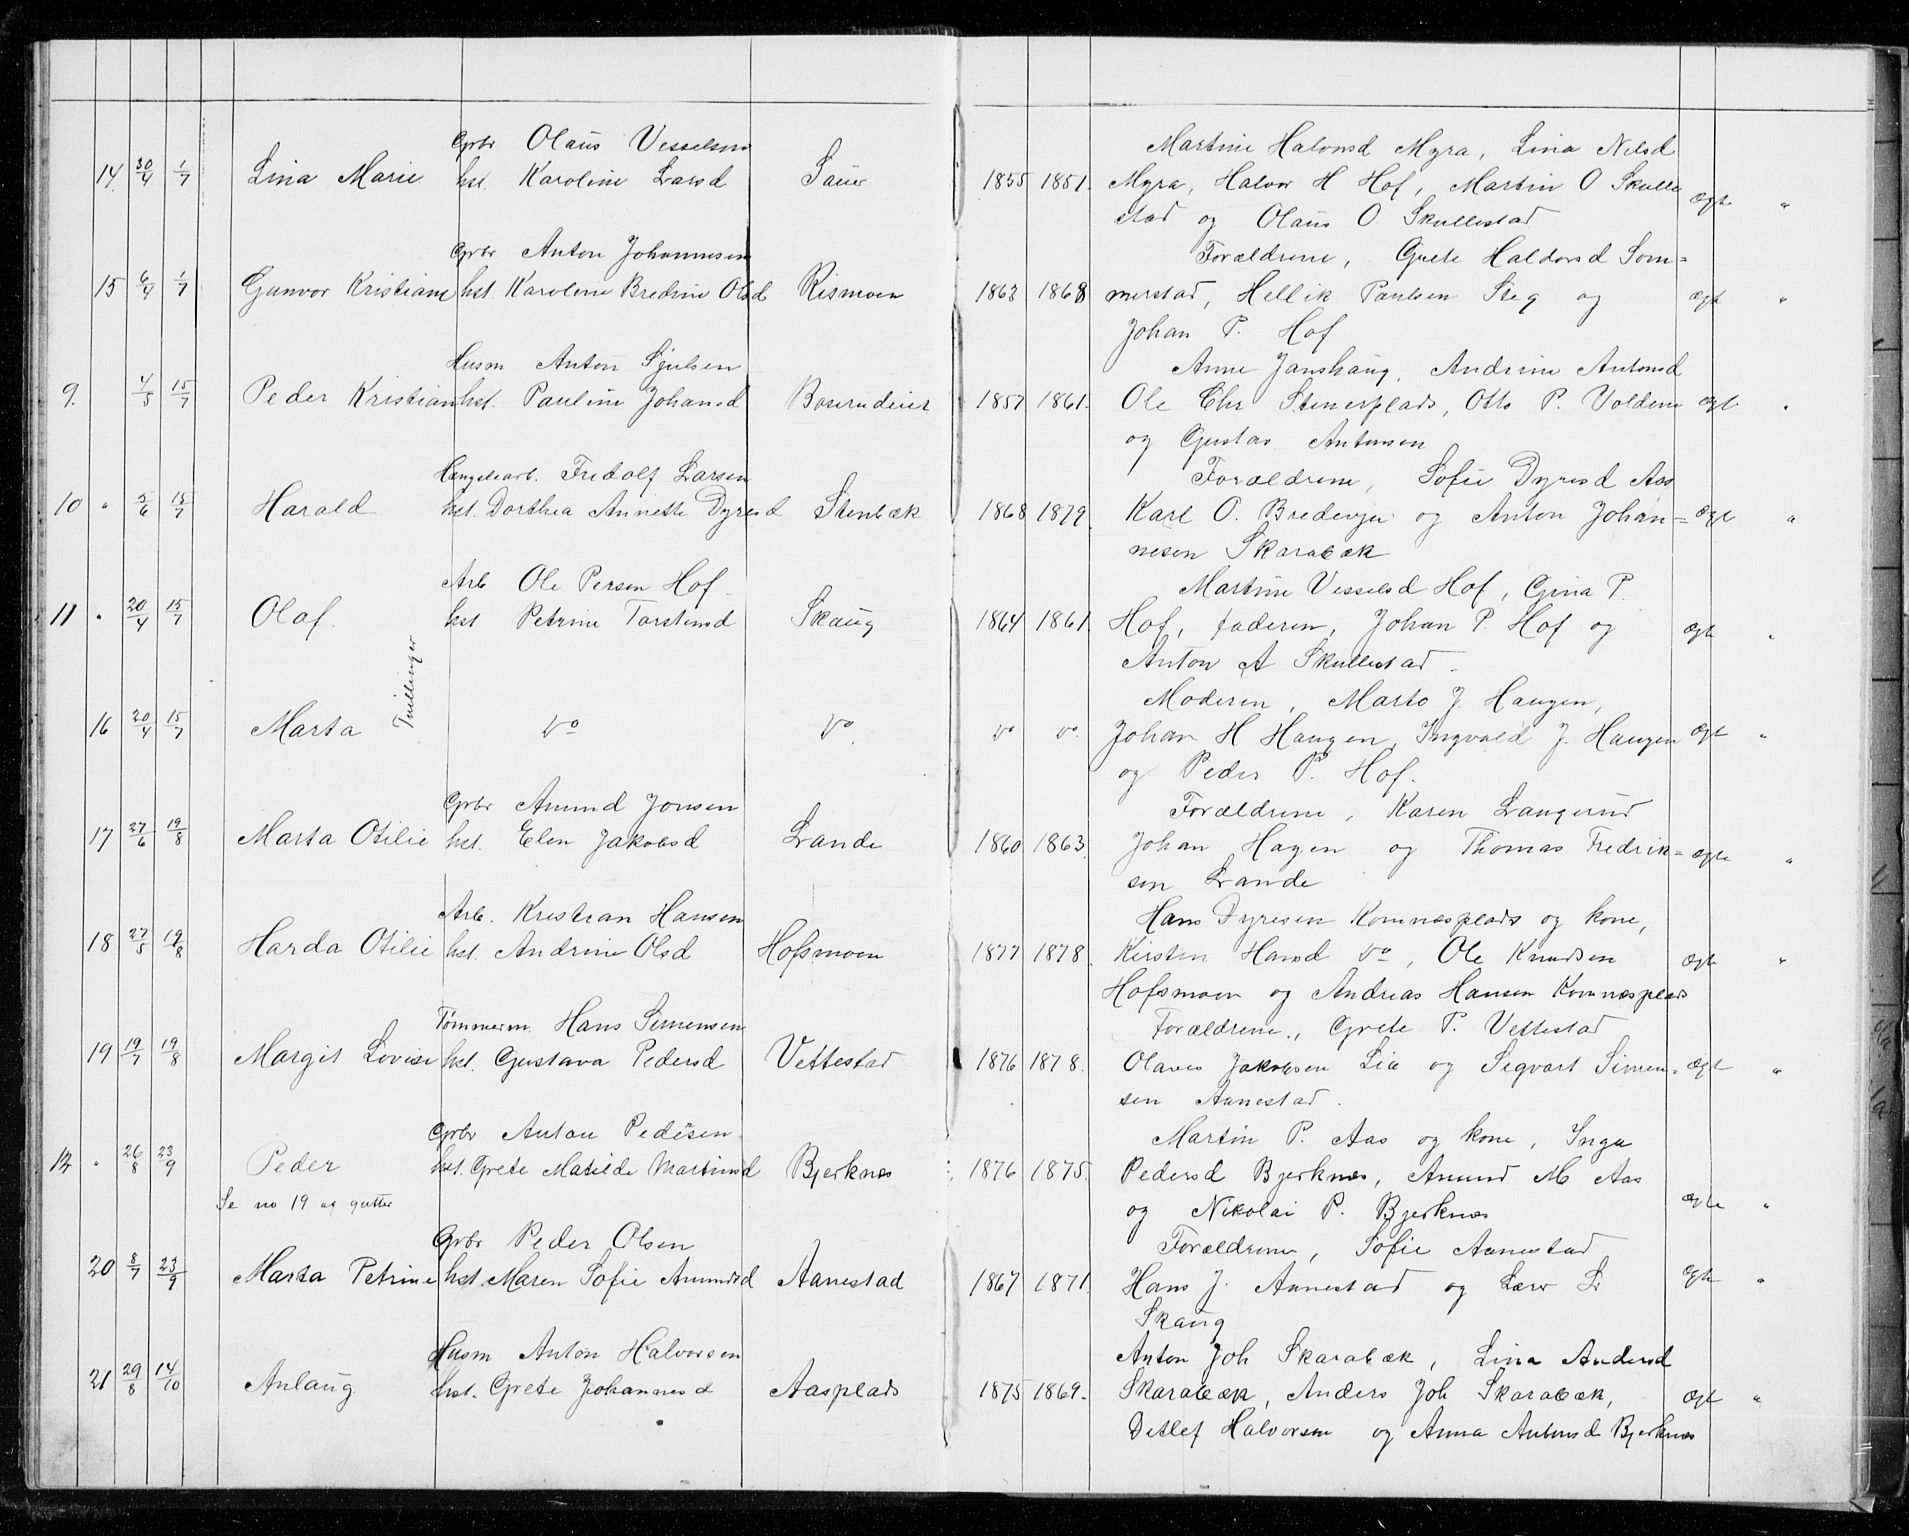 Gbr Olaus Vesselsen
14. 30/4 1/7 Lina Marie hst. Karoline Larsd Sauer
Gbr Anton Johannesen
15 6/4 1/7 Gunvor Kristiane hst. Karoline Bredine Olsd Rismoen
Husm Anton Gjulsen
9. 4/5 15/7 Peder Kristian hst. Pauline Johansd Boserudeier
Længslearb. Fridolf Larsen
10 " 5/6 15/7 Harald hst. Dorthea Annette Dyresd Stenbæk
Arb Ole Persen Hof
11 " 20/4 15/7 Olaf. hst Petrine Torstensd Skaug
Tvillinger
16 20/4 15/7 Marta do do
Gbr Amund Jonsen
17 27/6 19/8 Marta Otilie hst. Elen Jakobsd Lande
Arb. Kristian Hansen
18 27/5 19/8 Harda Otilie hst. Andrine Olsd Hofsmoen
Tømmerm. Hans Simensen
19 19/7 19/8 Margit Lovise hst. Gustava Pedersd Vettestad
Gbr Anton Pedersen
12 " 26/8 23/9 Peder hst. Grete Matilde Martinsd Bjerknes
Se no 19 og gutter
Gbr Peder Olsen
20 8/7 23/9 Marta Petrine hst. Maren Sofie Amundsd Aanestad
Husm Anton Halvorsen
21 29/8 14/10 Anlaug hst. Grete Johannesd Aasplads
Martine Halvorsd Myra, Lina Nilsd
1855 1851. Myra, Halvor H Hof, Martin O Skulle
stad og Olaus O. Skullestad ægte "
Forældrene, Grete Haldorsd Som=
1863 1868 merstad, Hellik Paulsen Steg og ægt "
Johan P. Hof
Anne Janshaug, Andrine Antonsd
1857 1861. Ole Chr Stenerplads, Otto P. Voldene ægt "
og Gustav Antonsen
Forældrene, Sofie Dyresd Aas
1868 1879. Karl O. Bredevjen og Anton Johan= ægt "
nesen Skarabæk
Martine Vesselsd Hof, Gina P.
1864 1861. Hof, faderen, Johan P. Hof og ægte "
Anton A Skullestad.
Moderen, Marto J. Haugen,
do do. Johan H Haugen, Ingvald J. Haugen ægt "
og Peder P. Hof.
Forældrene, Karen Langerud
1860 1863. Johan Hagen og Thomas Fredrik= ægte "
sen Lande
Hans Dyresen Komnæsplads og kone,
1877 1878. Kirsten Hansd do, Ole Knudsen ægte "
Hofsmoen og Andreas Hansen Komnæsplads
Forældrene, Grete P. Vettestad
1876 1878. Olaves Jakobsen Lia og Segvart Simen= ægt "
sen Aanestad.
Martin P. Aas og kone, Inga
1876 1875. Pedersd Bjerknes, Amund M Aas
og Nikolai P. Bjerknes ægte "
Forældrene, Sofie Aanestad
1867 1871. Hans J. Aanestad og Lars L ægte "
Skaug
Anton Joh Skarabæk, Lina Andersd
1875 1869. Skarabæk, Anders Joh Skarabæk, ægt "
Detlef Halvorsen og Anna Antonsd Bjerknes